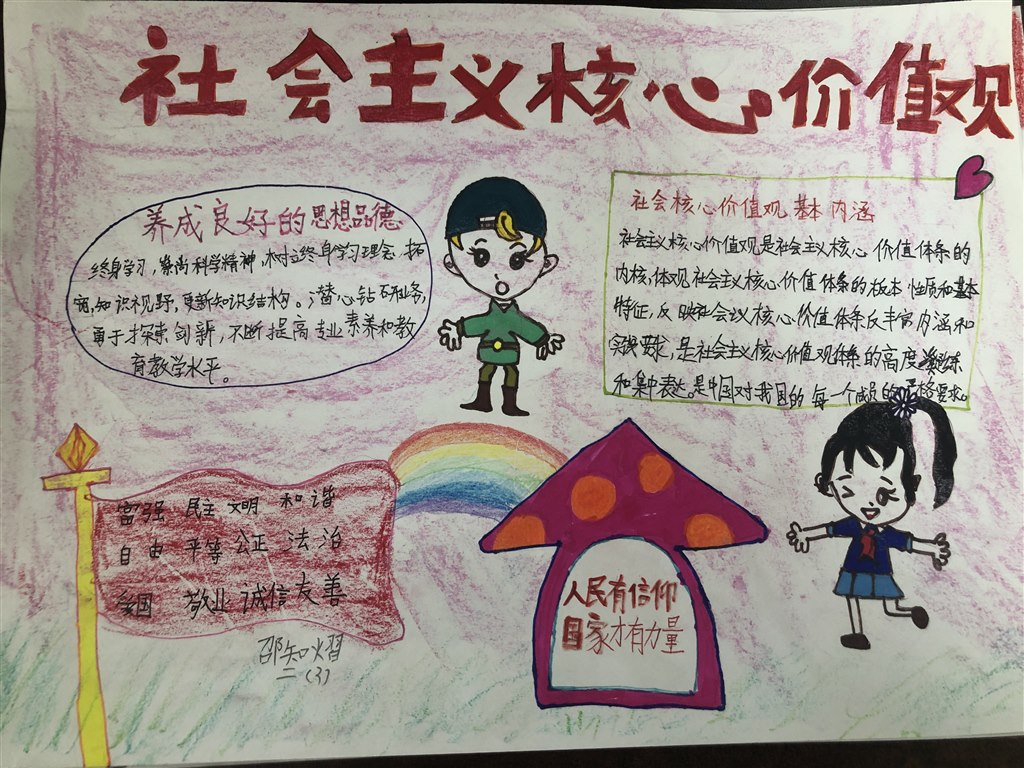 社会主义核心价值观
养成良好的思想品德
终身学习，崇尚科学精神，树立终身学习理念，拓
宽知识视野，更新知识结构。潜心钻研业务，
勇于探索创新，不断提高专业素养和教
育教学水平。
社会核心价值观基本内涵
社会主义核心价值观是社会主义核心价值体系的
内核，体现社会主义核心价值体系的根本性质和基本
特征，反映社会主义核心价值体系反丰富内涵和
实践要求，是社会主义核心价值观体系的高度凝练
和集中表达。是中国对我国的每一个成员的严格要求。
富强 民主 文明 和谐
自由 平等 公正 法治
爱国 敬业 诚信 友善
邵知熠
二（3）
人民有信仰
国家才有力量